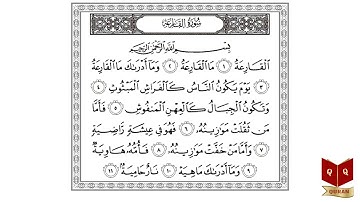 سُورَةُ القَارِعَةِ
بِسْمِ اللَّهِ الرَّحْمَٰنِ الرَّحِيمِ
الْقَارِعَةُ ١ مَا الْقَارِعَةُ ٢ وَمَا أَدْرَاكَ مَا الْقَارِعَةُ
٣ يَوْمَ يَكُونُ النَّاسُ كَالْفَرَاشِ الْمَبْثُوثِ ٤
وَتَكُونُ الْجِبَالُ كَالْعِهْنِ الْمَنْفُوشِ ٥ فَأَمَّا
مَن ثَقُلَتْ مَوَازِينُهُ ٦ فَهُوَ فِي عِيشَةٍ رَّاضِيَةٍ
٧ وَأَمَّا مَنْ خَفَّتْ مَوَازِينُهُ ٨ فَأُمُّهُ هَاوِيَةٌ
٩ وَمَا أَدْرَاكَ مَا هِيَهْ ١٠ نَارٌ حَامِيَةٌ ١١
Q Q
QURAN